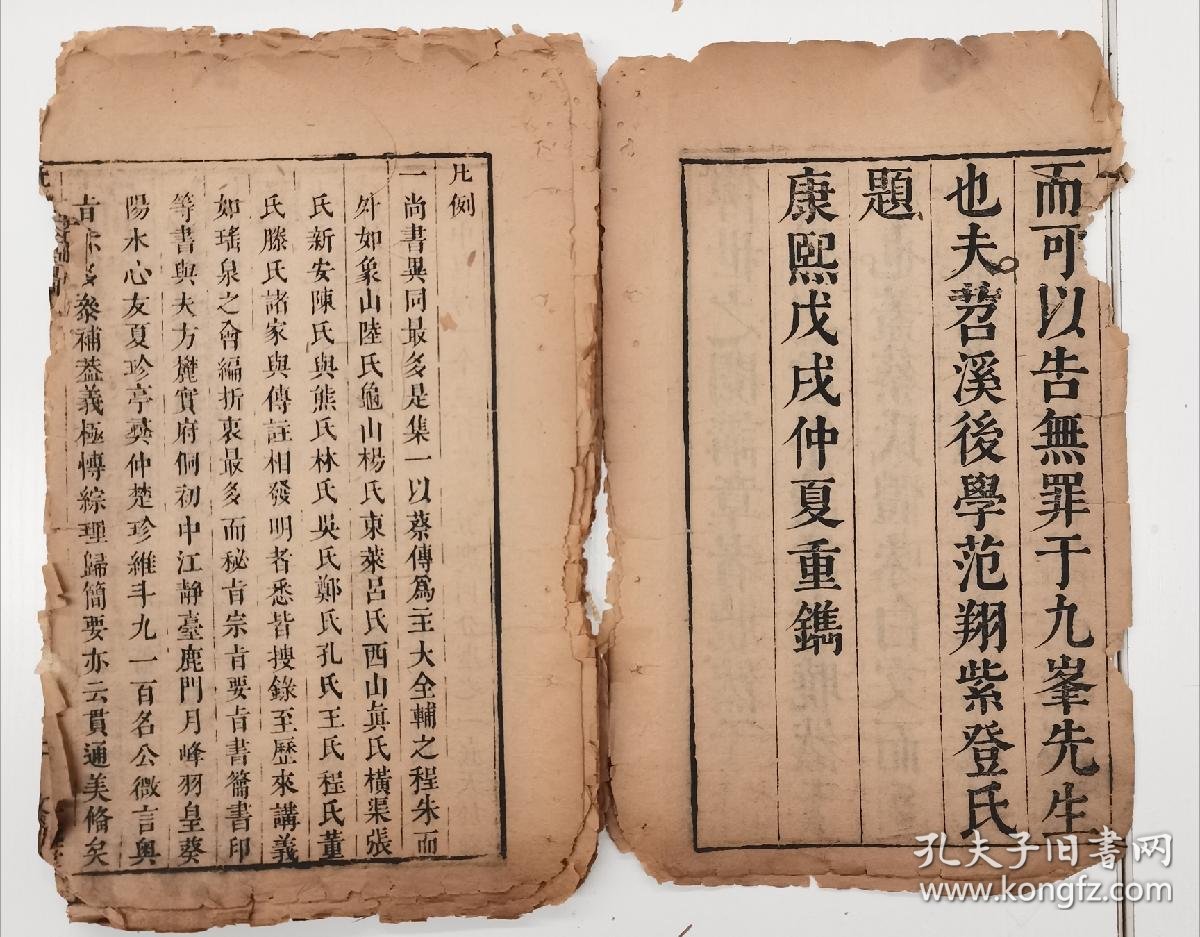 而可以告無罪于九峯先生
也夫苕溪後學范翔紫登氏
題
康熙戊戌仲夏重鐫
凡例
一尚書異同最多是集一以蔡傳爲主大全輔之程朱而
外如象山陸氏龜山楊氏東萊呂氏西山眞氏橫渠張
氏新安陳氏與熊氏林氏吳氏鄭氏孔氏王氏程氏董
氏滕氏諸家與傳註相發明者悉皆搜錄至歷來講義
如瑤泉之會編折衷最多而秘旨宗旨要旨書籥書印
等書與大方麓實府侗初中江靜臺鹿門月峰羽皇葵
陽水心友夏珍亭裝仲楚珍維斗九一百名公微言奥
旨亦多叅補葢義極慱綜理歸簡要亦云貫通美偹矣
孔夫子旧书网
www.kongfz.com